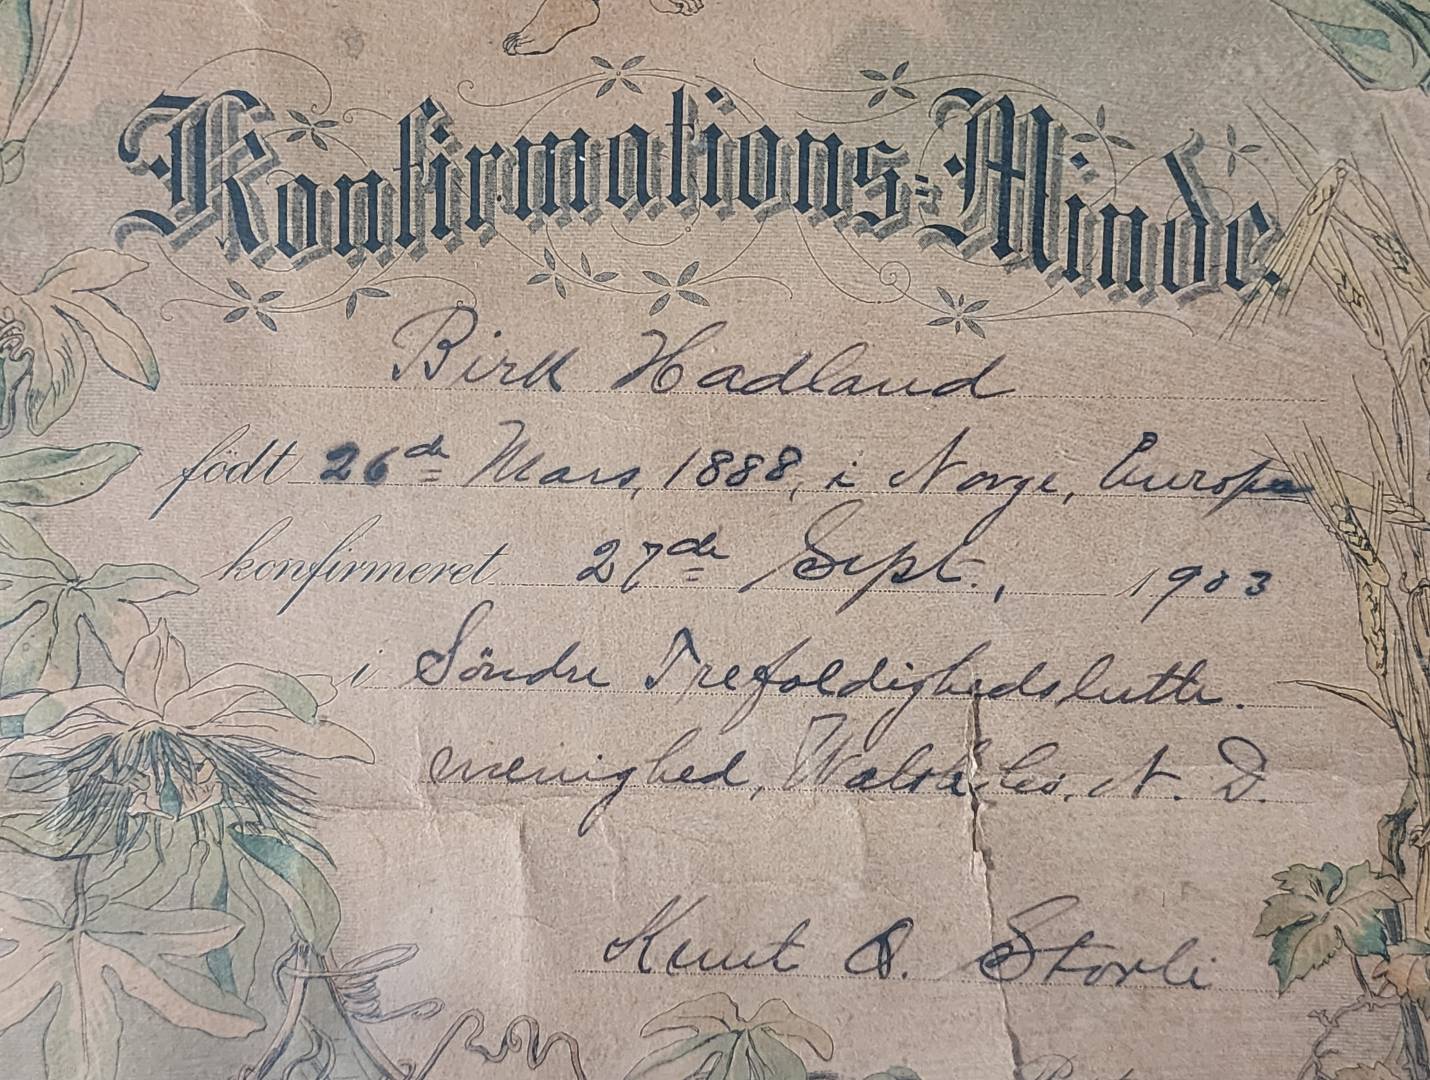 Konfirmations-Minde.
Birk Hadland
födt 26de Mars, 1888, i Norge, Europa
konfirmeret 27de Sept., 1903
i Söndre Trefoldighedsluth.
menighed, N. D.
Knut O. Storli